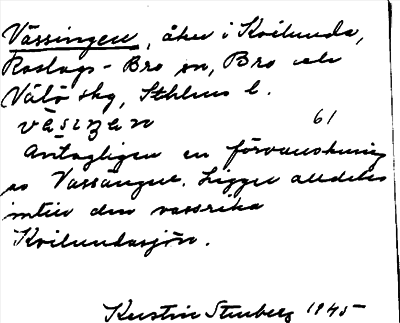 Vässingen, åker i Kvilunda,
Roslags-Bro sn, Bro och
Vätö skg, Sthlms l.
väsiŋən 61
Antagligen en förvanskning
av Vassängen. Ligger alldeles
intill den vassrika
Kvilundasjön.
Kerstin Stenberg 1945